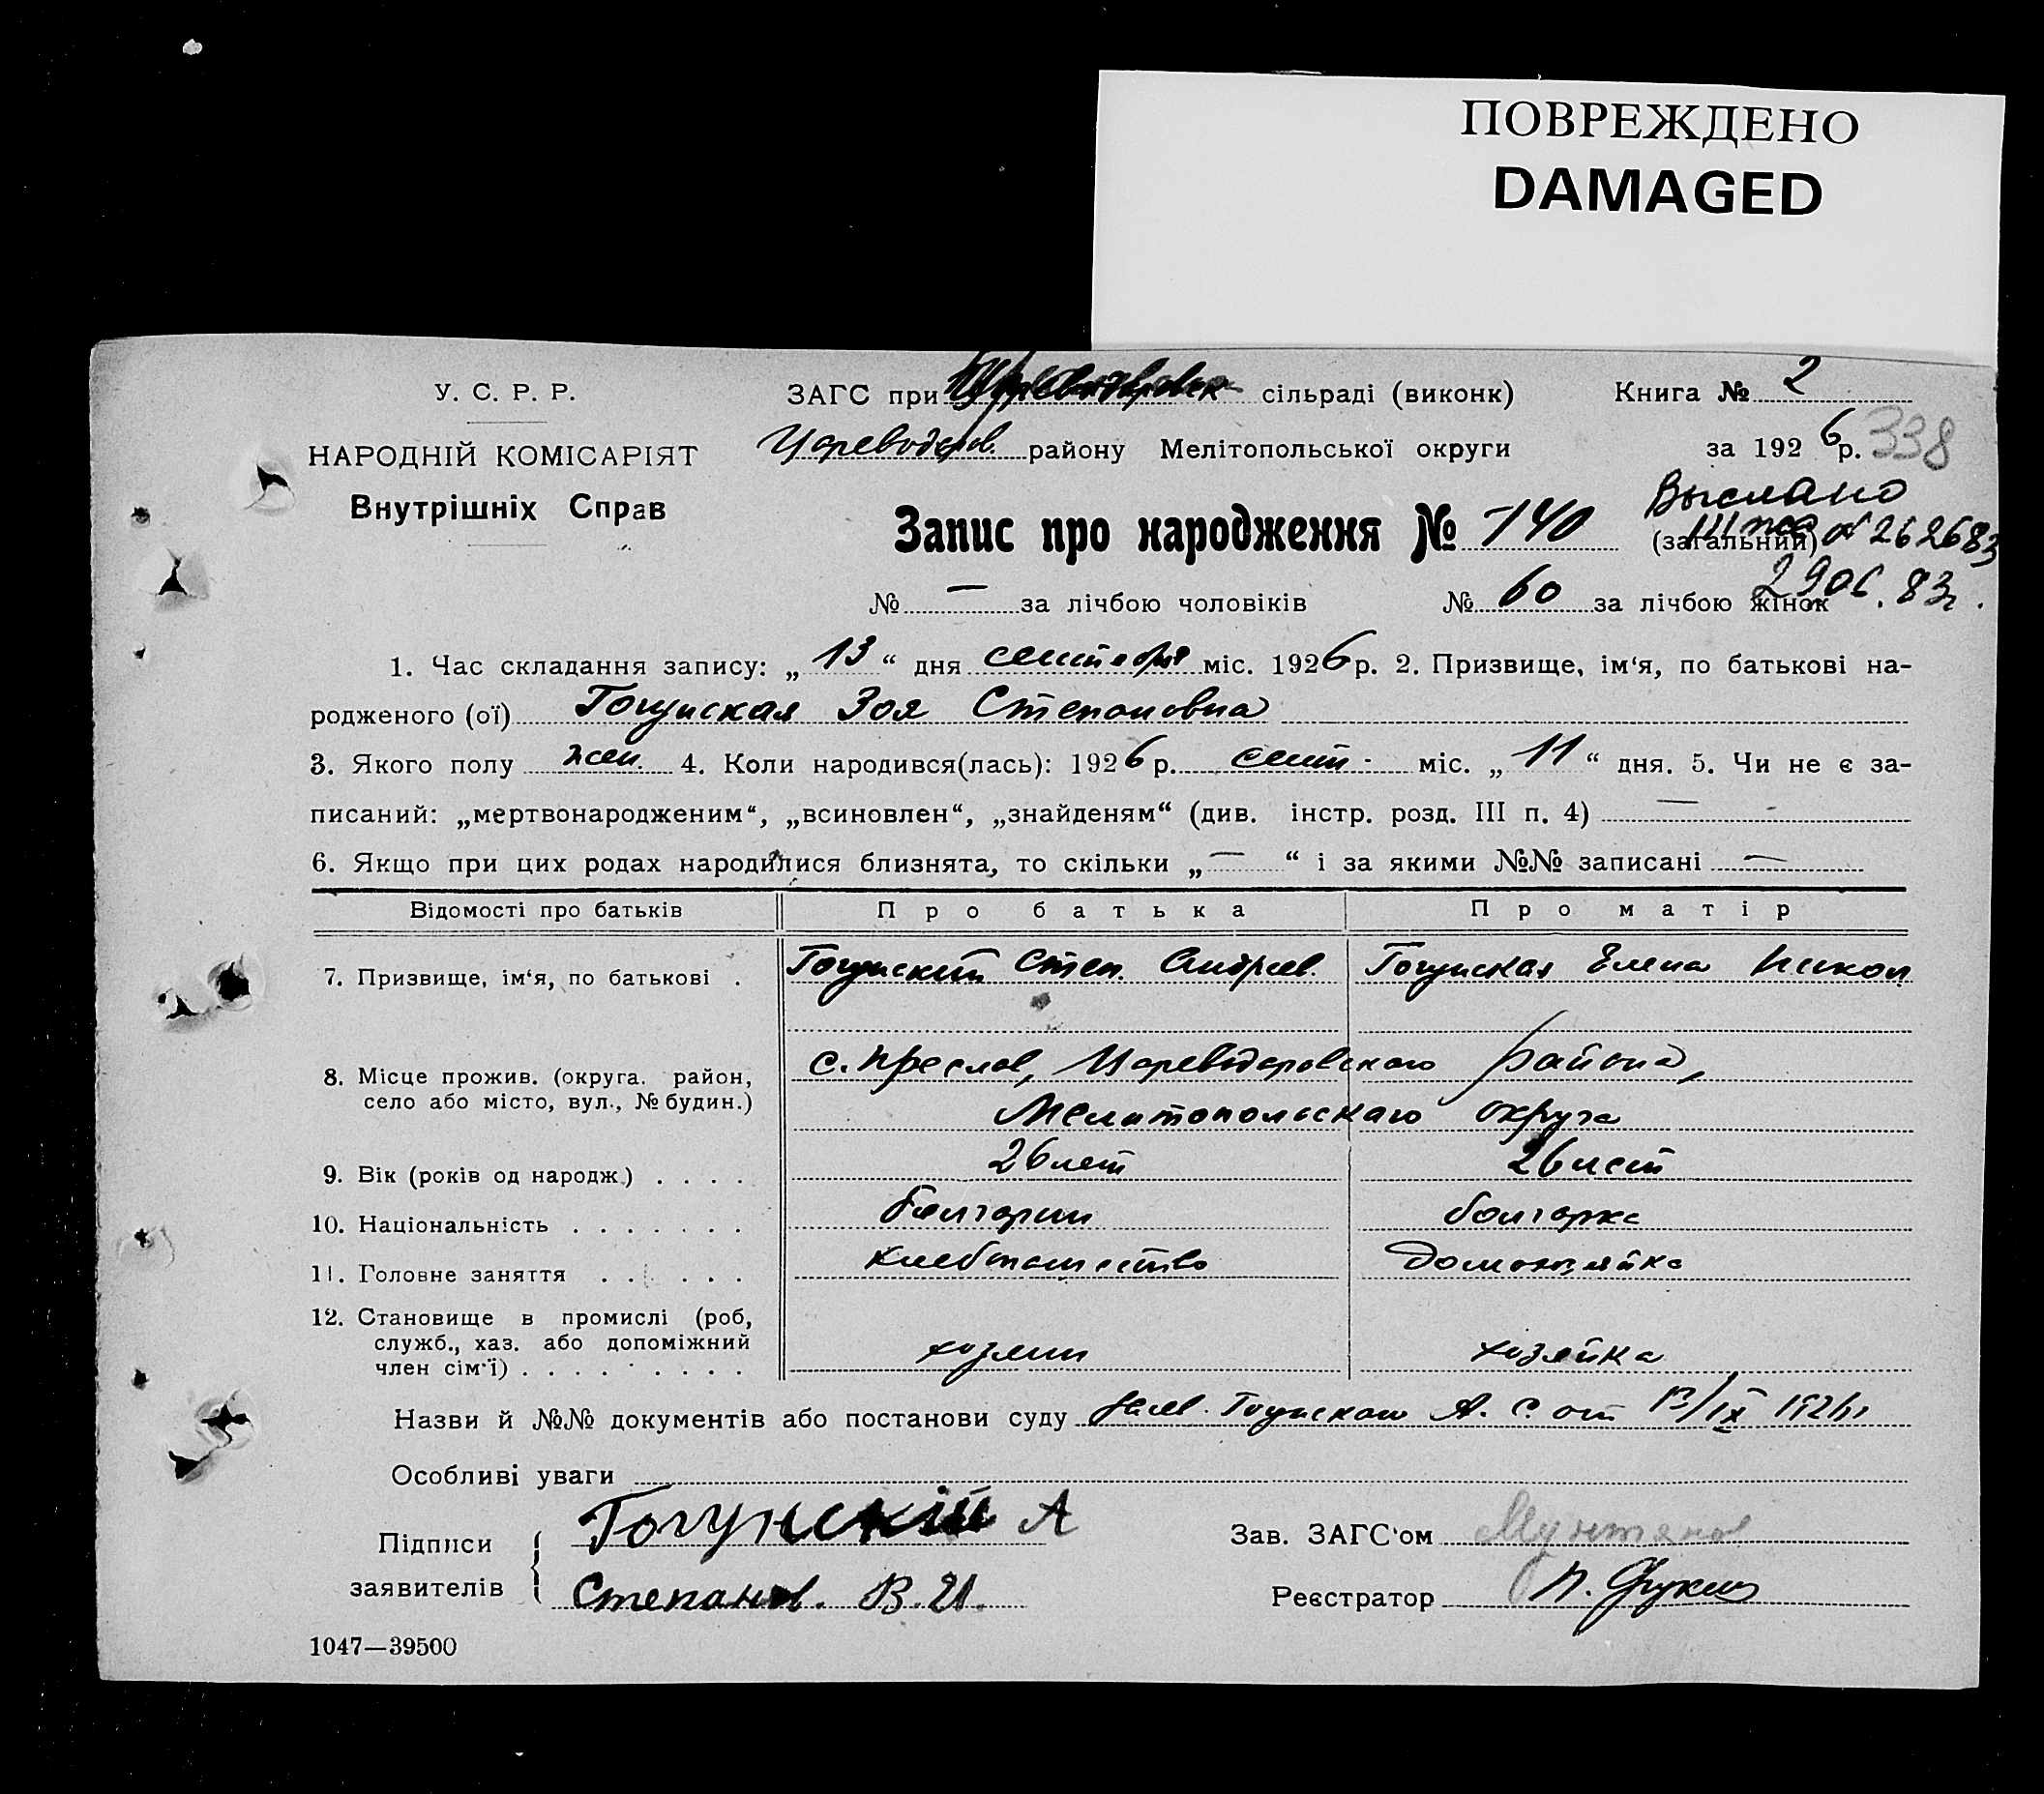 ПОВРЕЖДЕНО
DAMAGED
У. С. Р. Р.
НАРОДНІЙ КОМІСАРІЯТ
Внутрішніх Справ
ЗАГС при Цареводаровск сільраді (виконк)
Книга № 2
Цареводаров. району Мелітопольської округи
за 1926 р. 338
Выслано
Запис про народження № 140 (загальний) № 262683
№ — за лічбою чоловіків № 60 за лічбою жінок 2906.83г.
1. Час складання запису: „13“ дня сентября міс. 1926 р. 2. Призвище, ім‘я, по батькові на-
родженого (ої) Гогунская Зоя Степановна
3. Якого полу жен. 4. Коли народився(лась): 1926 р. сент. міс. „11“ дня. 5. Чи не є за-
писаний: „мертвонародженим“, „всиновлен“, „знайденям“ (див. інстр. розд. III п. 4) —
6. Якщо при цих родах народилися близнята, то скільки „—“ і за якими №№ записані —
Відомості про батьків Про батька Про матір
7. Призвище, ім‘я, по батькові . Гогунский Степ. Андреев. Гогунская Елена Никол
8. Місце прожив. (округа. район, с. Преслов, Цареводаровского района,
село або місто, вул., № будин.) Мелитопольскаго округа
9. Вік (років од народж.) . . . . 26 лет 26 лет
10. Національність . . . . . . . болгарин болгарка
11. Головне заняття . . . . . . хлебопашество домохозяйка
12. Становище в промислі (роб,
служб., хаз. або допоміжний
член сім‘ї) . . . . . . . . хозяин хозяйка
Назви й №№ документів або постанови суду Гогунскаго А. С. от 13/IX 1926г
Особливі уваги
Підписи
заявителів
Гогунскій А
Степанов. В. И.
Зав. ЗАГС‘ом Мунтянов
Реєстратор
1047—39500